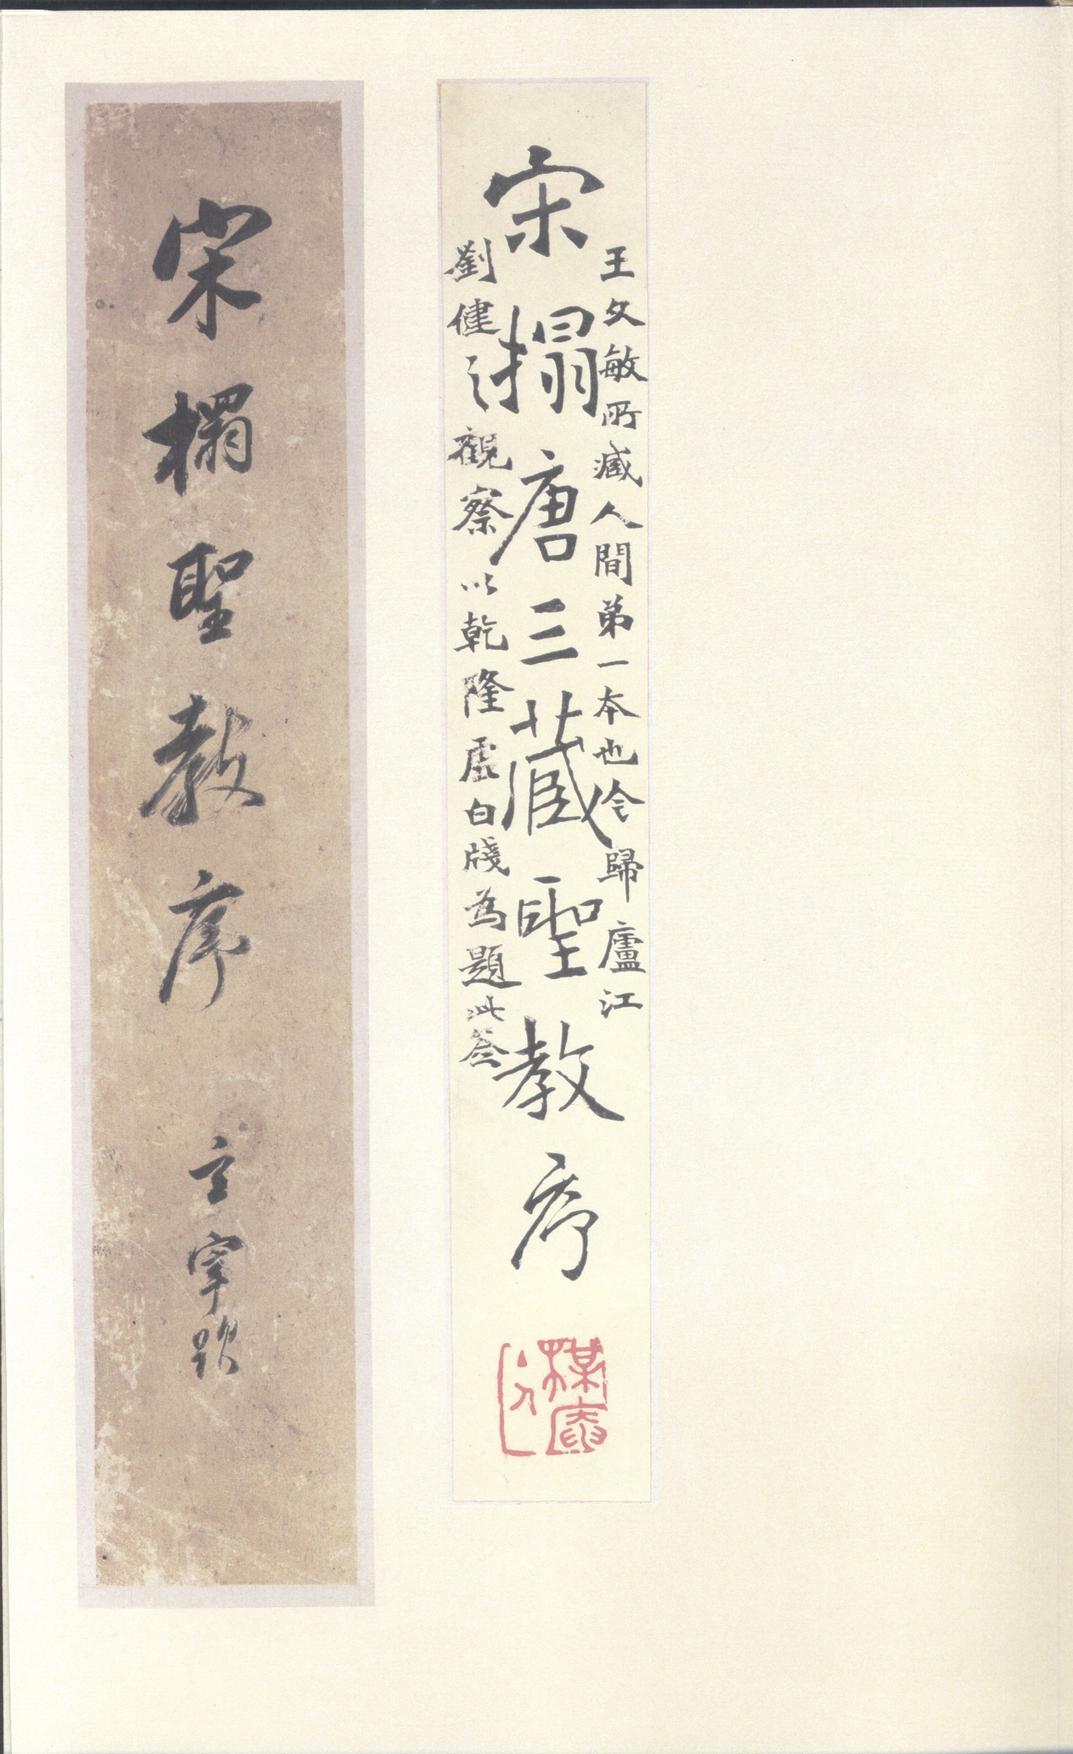 王文敏所藏人間弟一本也今歸廬江
宋搨唐三藏聖教序
劉健之觀察以乾隆虛白牋為題此签
宋搨聖教序
玄宰題